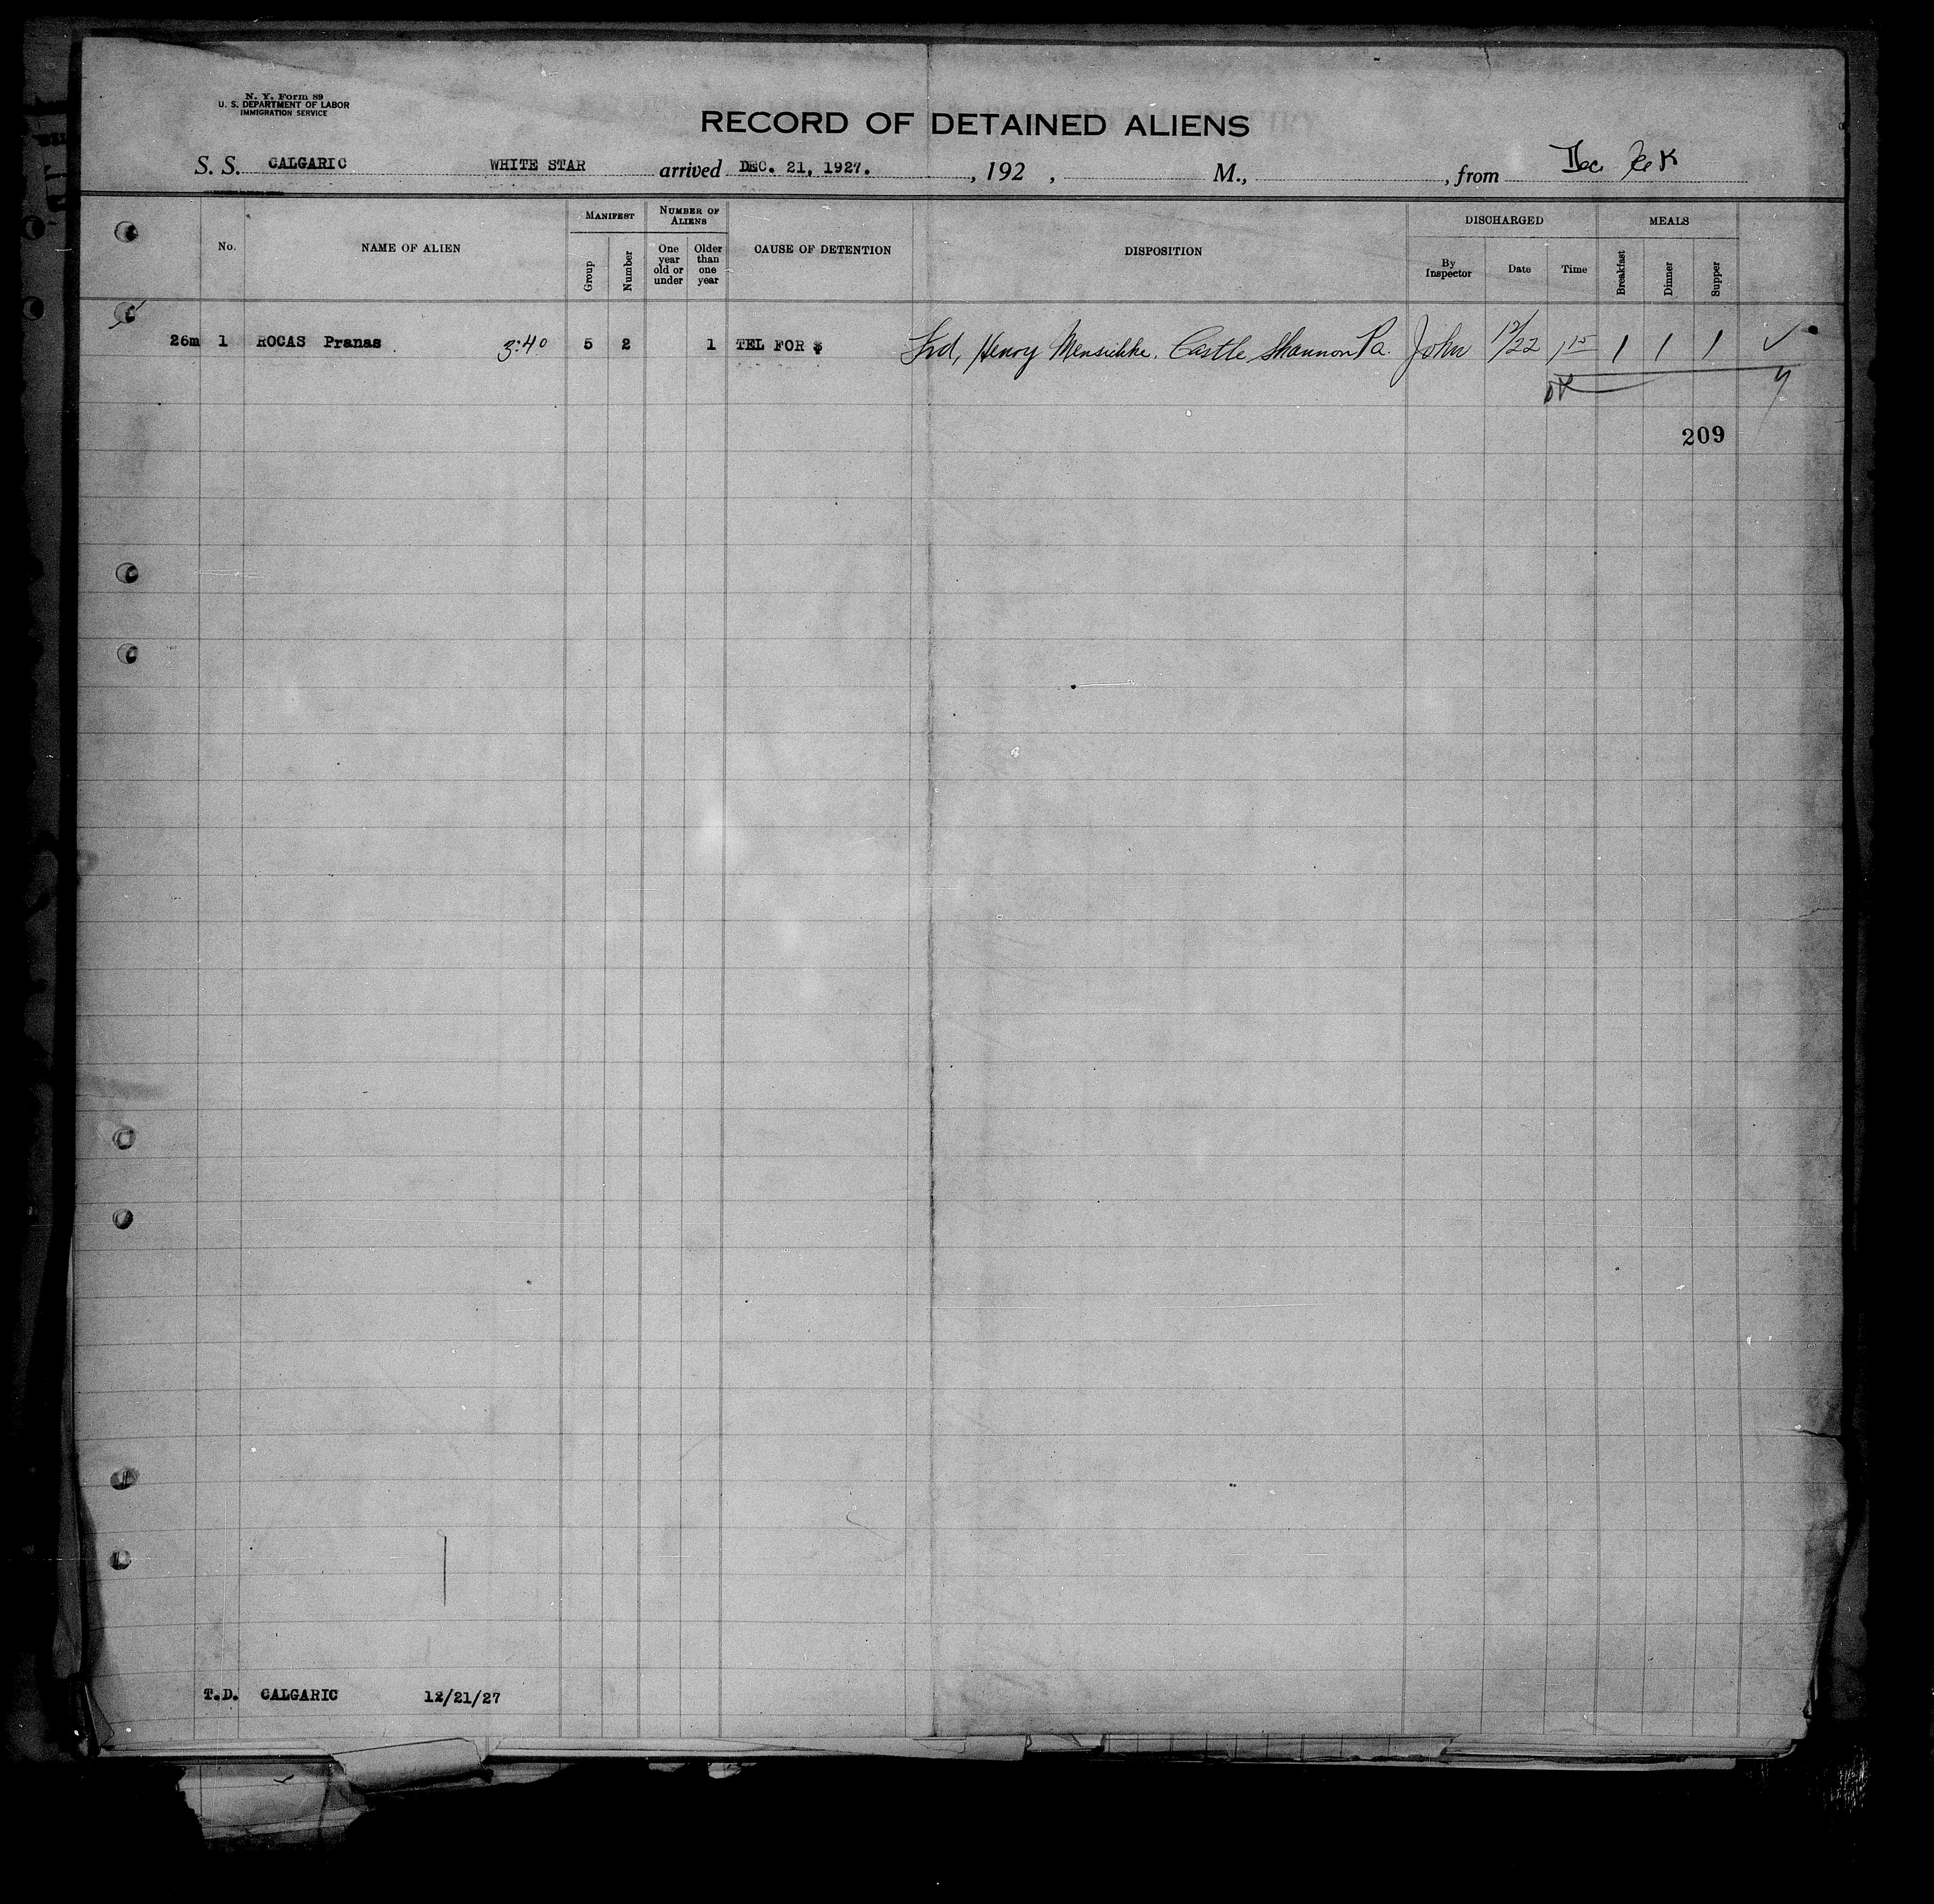 N. Y. Form 89
U. S. DEPARTMENT OF LABOR
IMMIGRATION SERVICE
RECORD OF DETAINED ALIENS
S. S. CALGARIC WHITE STAR arrived DEC. 21, 1927. , 192 , M., , from
No. NAME OF ALIEN MANIFEST Group Number NUMBER OF ALIENS One year old or under Older than one year CAUSE OF DETENTION DISPOSITION DISCHARGED By Inspector Date Time MEALS Breakfast Dinner Supper
26m 1 ROCAS Pranas 3:40 5 2 1 TEL FOR $ Henry Castle Shannon Pa. John 12/22 1 15 1 1 1 ✓
OK
209
T.D. CALGARIC 12/21/27